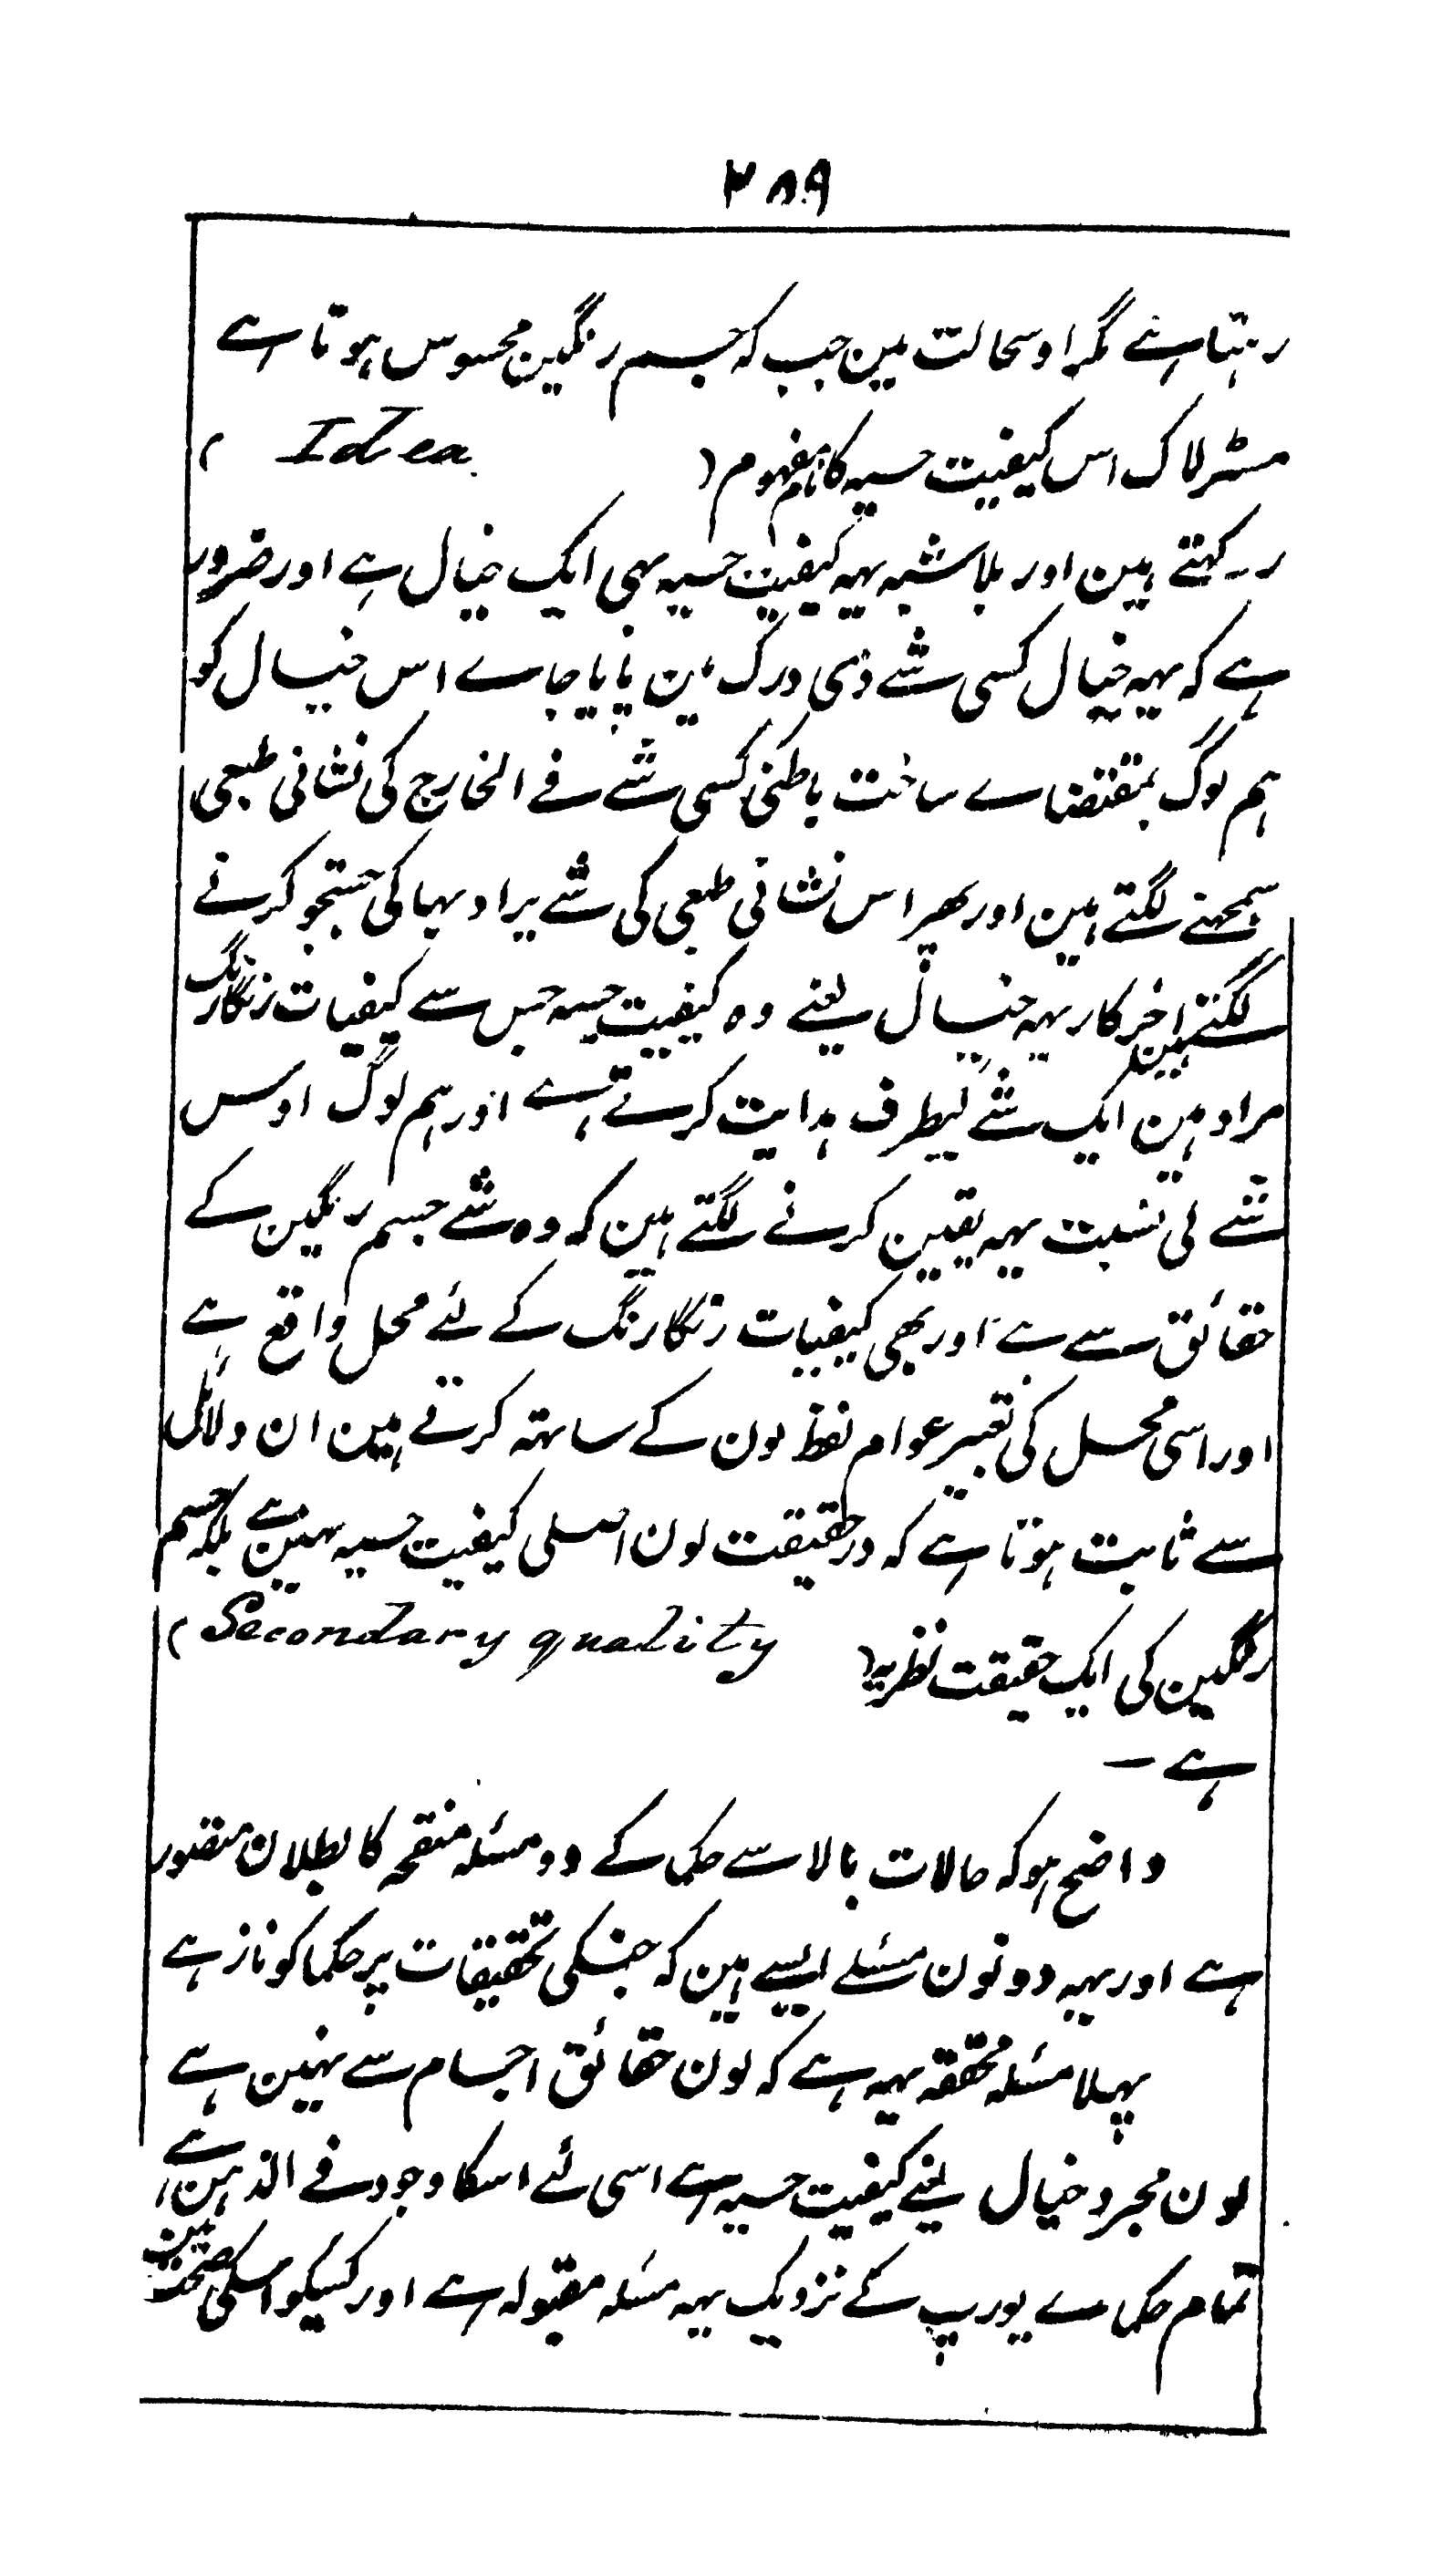 ۲۸۹
رہتا ہے مگر اوسحالت مین جب کہ جسم رنگین محسوس ہوتا ہے
مسٹر لاک اس کیفیت حسیہ کا نام مفہوم ( Idea )
رکہتے ہین اور بلاشبہ یہہ کیفیت حسیہ بہی ایک خیال ہے اور ضرور
ہے کہ یہہ خیال کسی شے ذی درک مین پایا جاے اس خیال کو
ہم لوگ بمقتضاے ساخت باطنی کسی شے فے الخارج کی نشانی طبعی
سمجہنے لگتے ہین اور پھر اس نشانی طبعی کی شے براد بہا کی جستجو کرنے
لگتے ہین اخر کار یہہ خیال یعنے وہ کیفیت حسیہ جس سے کیفیات رنگارنگ
مراد ہین ایک شے کیطرف ہدایت کرتے ہے اور ہم لوگ اوس
شے کی نسبت یہہ یقین کرنے لگتے ہین کہ وہ شے جسم رنگین کے
حقائق سے ہے اور بھی کیفیات رنگارنگ کے لئے محل واقع ہے
اور اسی محل کی تعبیر عوام لفظ لون کے ساتہہ کرتے ہین ان دلائل
سے ثابت ہوتا ہے کہ درحقیقت لون اصلی کیفیت حسیہ نہین ہے بلکہ جسم
رنگین کی ایک حقیقت نظریہ ( Secondary quality )
ہے ـ
واضح ہو کہ حالات بالا سے حکما کے دو مسئلہ منقحہ کا بطلان متصور
ہے اور یہہ دونون مسئلے ایسے ہین کہ جنکی تحقیقات پر حکما کو ناز ہے
پہلا مسئلہ محققہ یہہ ہے کہ لون حقائق اجسام سے نہین ہے
لون مجرد خیال یعنے کیفیت حسیہ ہے اسی لئے اسکا وجود فے الذہن ہے
تمام حکماے یورپ کے نزدیک یہہ مسئلہ مقبولہ ہے اور کسیکو اسکی صحت مین